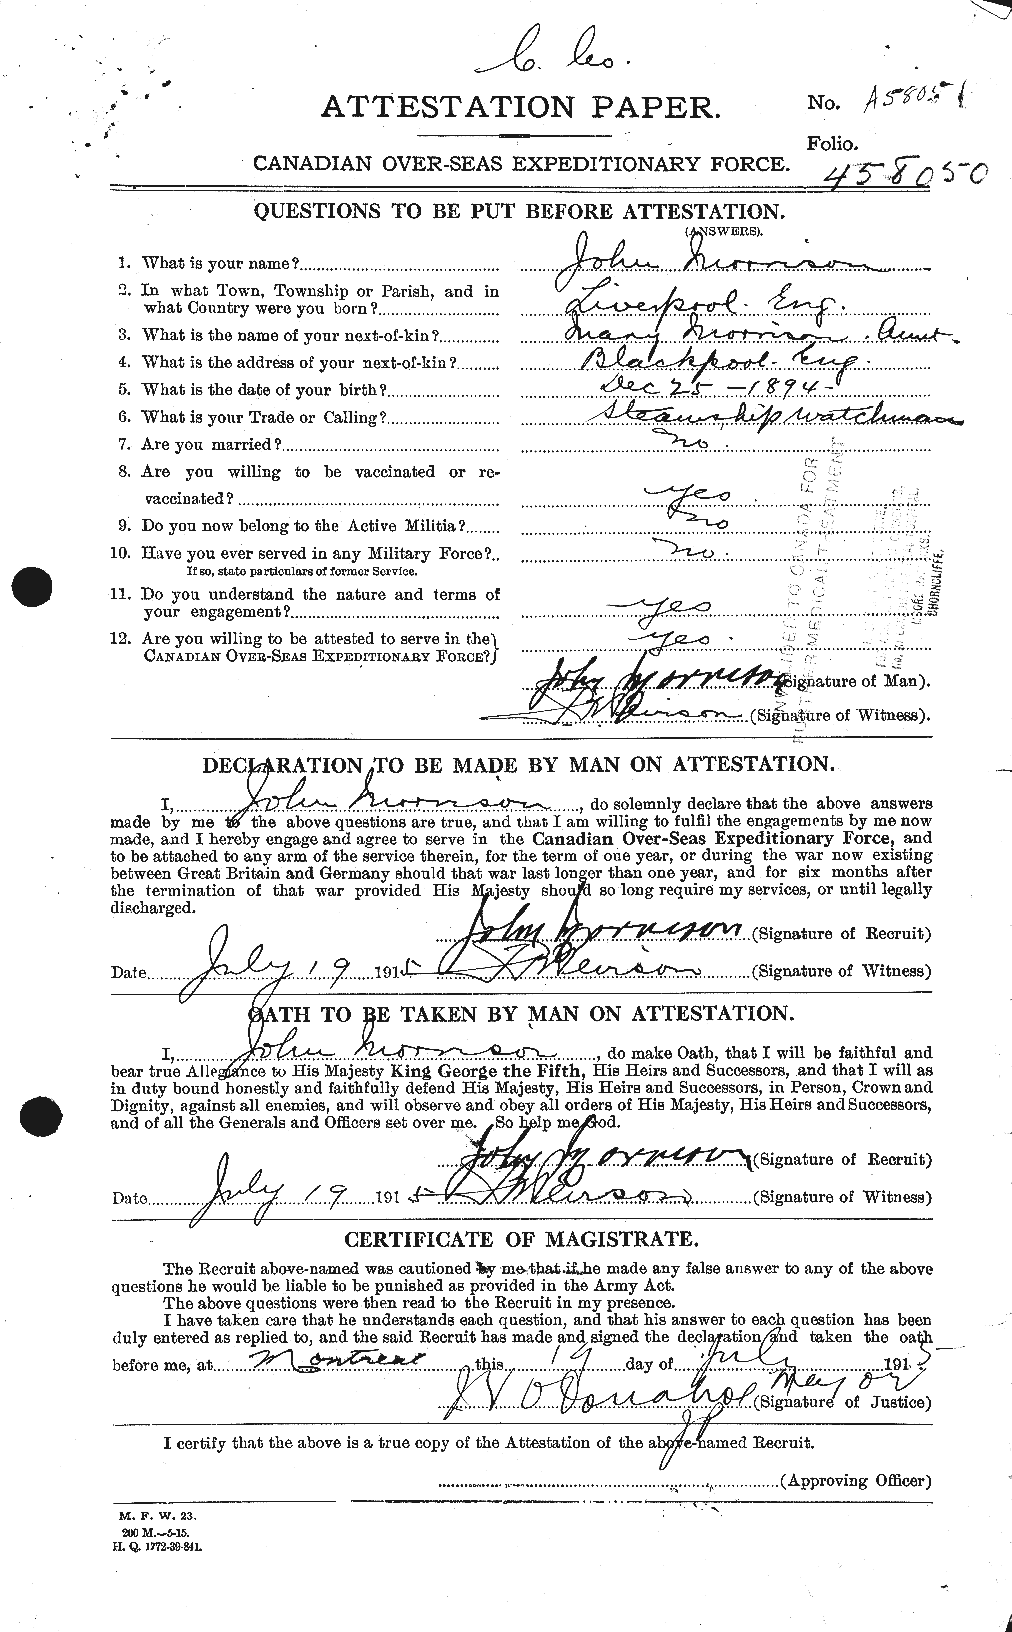 C. Co.
ATTESTATION PAPER.
No. A58051
Folio.
CANADIAN OVER-SEAS EXPEDITIONARY FORCE.
458050
QUESTIONS TO BE PUT BEFORE ATTESTATION.
(ANSWERS).
1. What is your name? John Morrison
2. In what Town, Township or Parish, and in
what Country were you born? Liverpool. Eng.
3. What is the name of your next-of-kin? Mary Morrison. Aunt.
4. What is the address of your next-of-kin? Blackpool. Eng.
5. What is the date of your birth? Dec 25 - 1894 -
6. What is your Trade or Calling? Steamship watchman
7. Are you married? No.
8. Are you willing to be vaccinated or re-
vaccinated? yes.
9. Do you now belong to the Active Militia? No
10. Have you ever served in any Military Force? No.
If so, state particulars of former Service.
11. Do you understand the nature and terms of
your engagement? yes
12. Are you willing to be attested to serve in the
CANADIAN OVER-SEAS EXPEDITIONARY FORCE? yes.
TO CANADA FOR
MEDICAL TREATMENT
SHORNCLIFFE.
John Morrison (Signature of Man).
Peirson (Signature of Witness).
DECLARATION TO BE MADE BY MAN ON ATTESTATION.
I, John Morrison, do solemnly declare that the above answers
made by me to the above questions are true, and that I am willing to fulfil the engagements by me now
made, and I hereby engage and agree to serve in the Canadian Over-Seas Expeditionary Force, and
to be attached to any arm of the service therein, for the term of one year, or during the war now existing
between Great Britain and Germany should that war last longer than one year, and for six months after
the termination of that war provided His Majesty should so long require my services, or until legally
discharged.
John Morrison (Signature of Recruit)
Date July 19 1915 Peirson (Signature of Witness)
OATH TO BE TAKEN BY MAN ON ATTESTATION.
I, John Morrison, do make Oath, that I will be faithful and
bear true Allegiance to His Majesty King George the Fifth, His Heirs and Successors, and that I will as
in duty bound honestly and faithfully defend His Majesty, His Heirs and Successors, in Person, Crown and
Dignity, against all enemies, and will observe and obey all orders of His Majesty, His Heirs and Successors,
and of all the Generals and Officers set over me. So help me God.
John Morrison (Signature of Recruit)
Date July 19 1915 Peirson (Signature of Witness)
CERTIFICATE OF MAGISTRATE.
The Recruit above-named was cautioned by me that if he made any false answer to any of the above
questions he would be liable to be punished as provided in the Army Act.
The above questions were then read to the Recruit in my presence.
I have taken care that he understands each question, and that his answer to each question has been
duly entered as replied to, and the said Recruit has made and signed the declaration and taken the oath
before me, at Montreal this 19 day of July 1915
J V O'Donahoe Major (Signature of Justice)
JP
I certify that the above is a true copy of the Attestation of the above-named Recruit.
(Approving Officer)
M. F. W. 23.
200 M.—5-15.
H. Q. 1772-39-841.